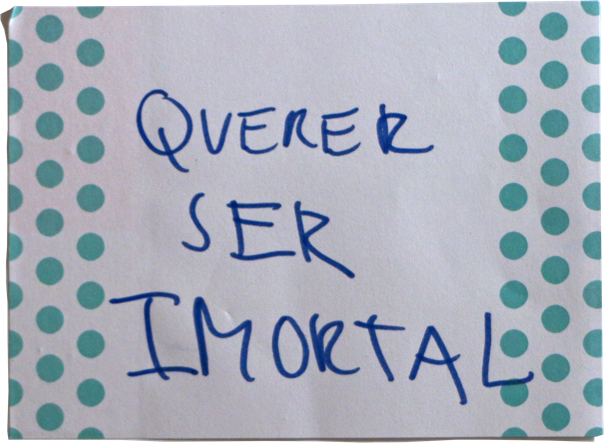 QUERER
SER
IMORTAL